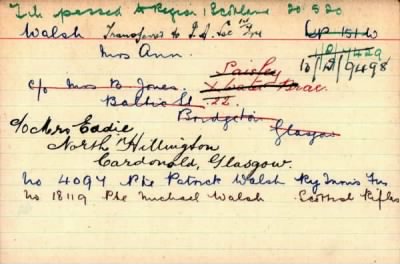 File passed to Region 1 Scotland 20.5.20
Walsh Transferred to
Mrs Ann.
Paisley
c/o Mrs B Jones.
Baltic St. 22.
Bridgeton
Glasgow
c/o Mrs Eadie
North Hillington
Cardonald, Glasgow.
No 4097 Pte Patrick Walsh Ry Innis Fus
No 18119 Pte Michael Walsh Scottish Rifles